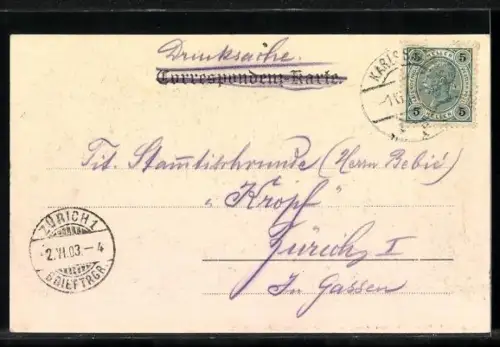 Drucksache.
Correspondenz-Karte.
KARLSB
5 5
5 HELLER 5
Tit. Stammtischrunde (Herrn Bebié)
"Kropf"
Zürich I
In Gassen
ZÜRICH 1
2.VI.03.-4
BRIEFTRGR.